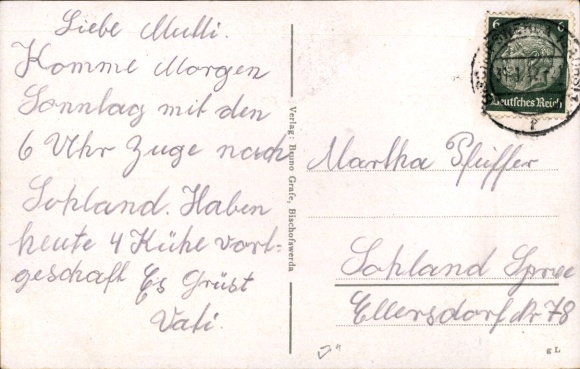 Liebe Mutti.
Komme Morgen
Sonntag mit den
6 Uhr Zuge nach
Sohland. Haben
heute 4 Kühe vort-
geschaft Es Grüst
Vati.
Verlag: Bruno Grafe, Bischofswerda
6 6
Deutsches Reich
Martha Pfeiffer
Sohland Spree
Ellersdorf Nr 78
g L